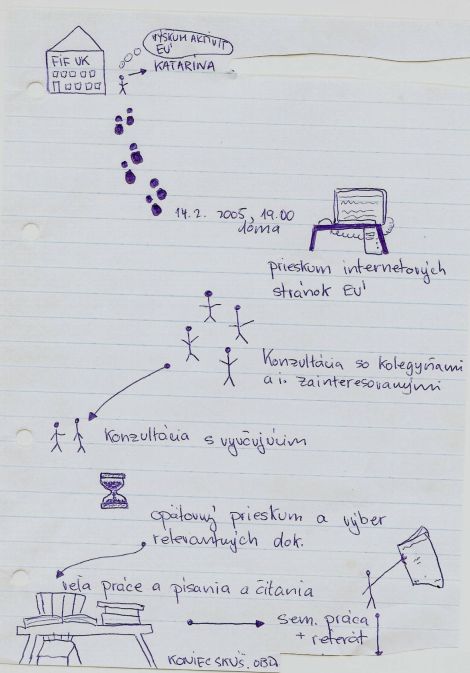 VÝSKUM AKTIVÍT
EÚ
FIF UK
KATARINA
14.2. 2005, 19.00
doma
prieskum internetových
stránok EÚ
Konzultácia so kolegyňami
a i. zainteresovanými
Konzultácia s vyučujúcim
opätovný prieskum a výber
relevantných dok.
veľa práce a písania a čítania
sem. práca
+ referát
KONIEC SKÚŠ. OBD.